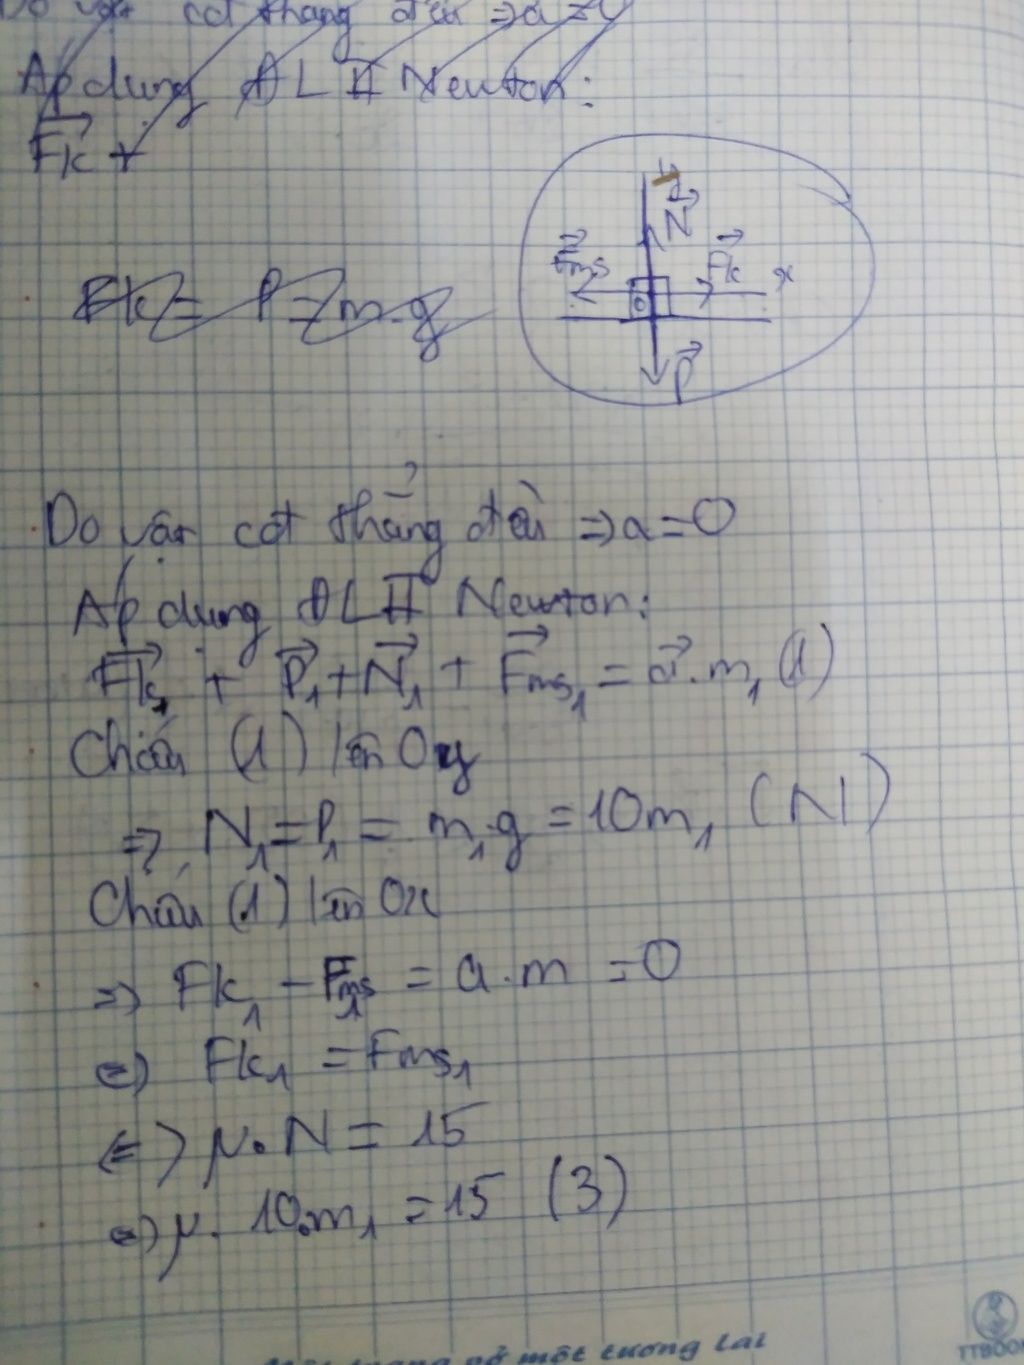 Do vật cđt thẳng đều => a = 0
Áp dụng ĐL II Newton:
Fk +
y
N
Fms
Fk
x
O
Fk = P = m.g
P
Do vật cđt thẳng đều => a = 0
Áp dụng ĐL II Newton:
Fk₁ + P₁ + N₁ + Fms₁ = a.m₁ (1)
Chiếu (1) lên Oy
=> N₁ = P₁ = m₁.g = 10m₁ (N)
Chiếu (1) lên Ox
=> Fk₁ - Fms₁ = a.m = 0
<=> Fk₁ = Fms₁
<=> μ.N = 15
<=> μ.10.m₁ = 15 (3)
một tương lai
TTBOOK